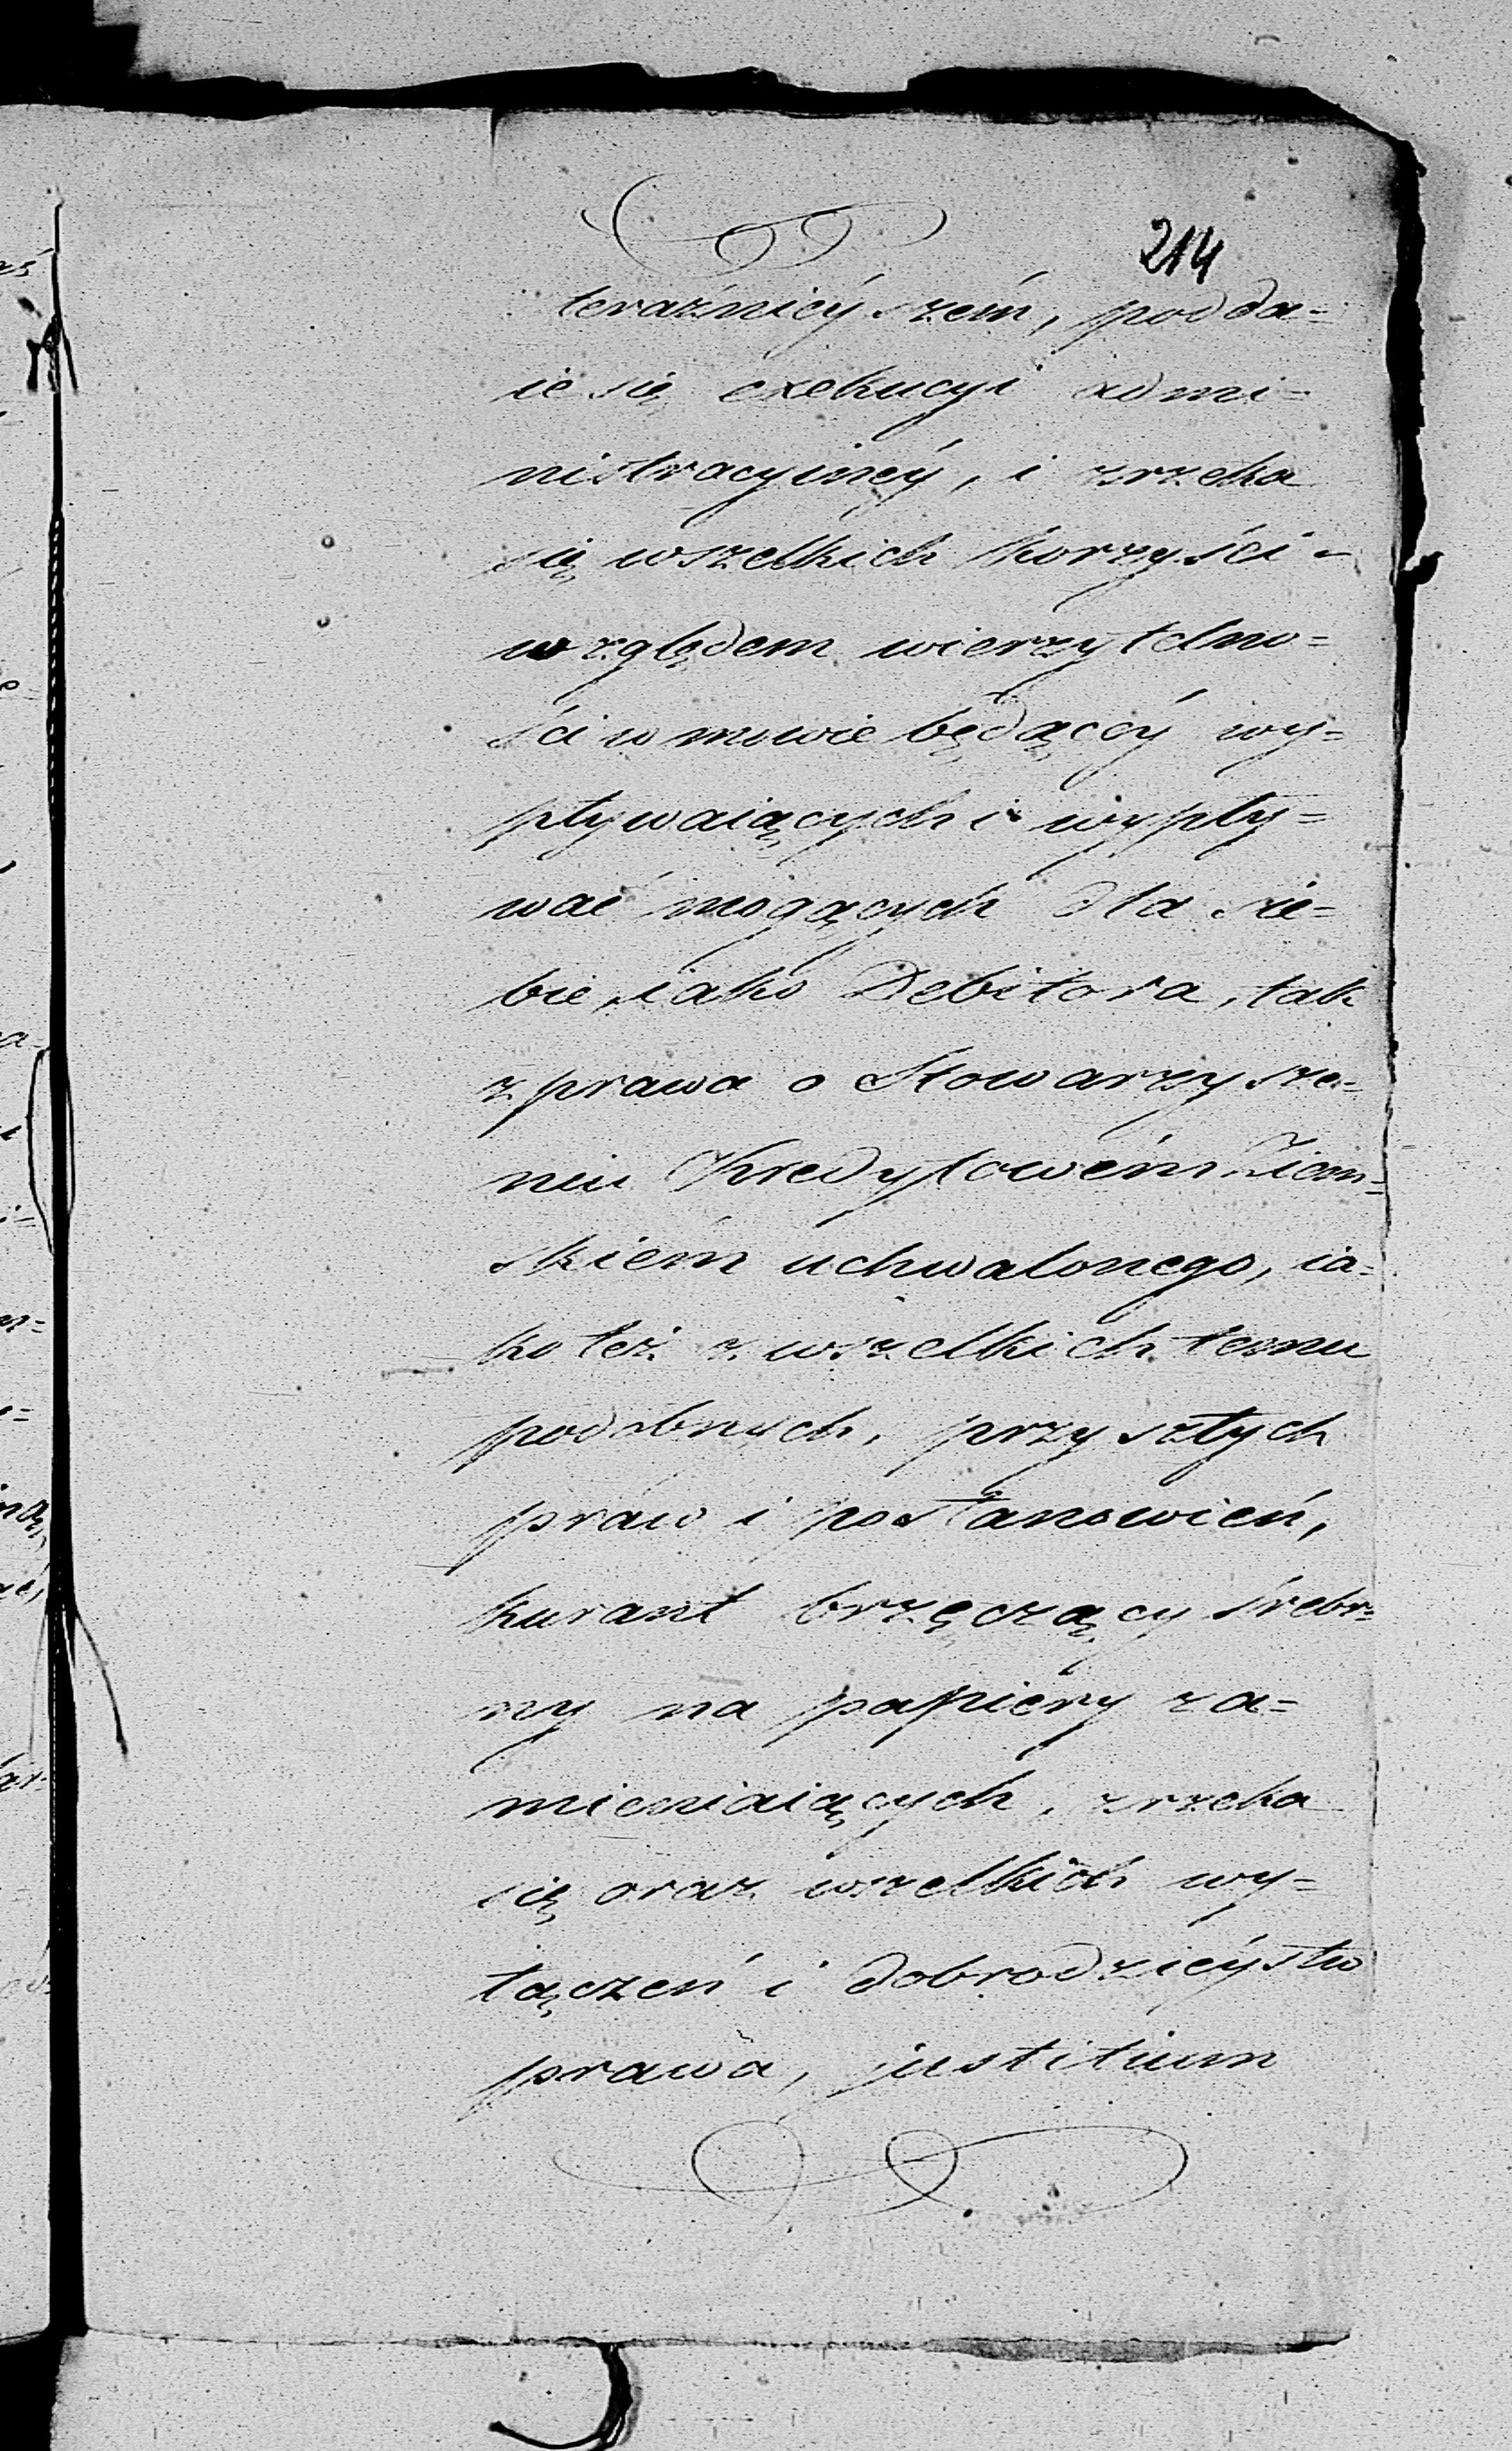 214
teraźnieyszém, podda=
ie się exekucyi admi=
nistracyinéy, i zrzeka
się wszelkich korzyści -
względem wierzytelno=
ści w mowie będącéy wy=
pływaiących i wypły=
wać mogących dla sie=
bie, iako Debitora, tak
z prawa o Stowarzysze=
niu Kredytowém Ziem=
skiém uchwalonego, ia=
ko też z wszelkich temu
podobnych, przyszłych
praw i postanowień,
kurant brzęczący srebr=
ny na papiéry za=
mieniaiących, zrzeka
się oraz wszelkich wy=
łączeń i dobrodzieystw
prawa, justitium